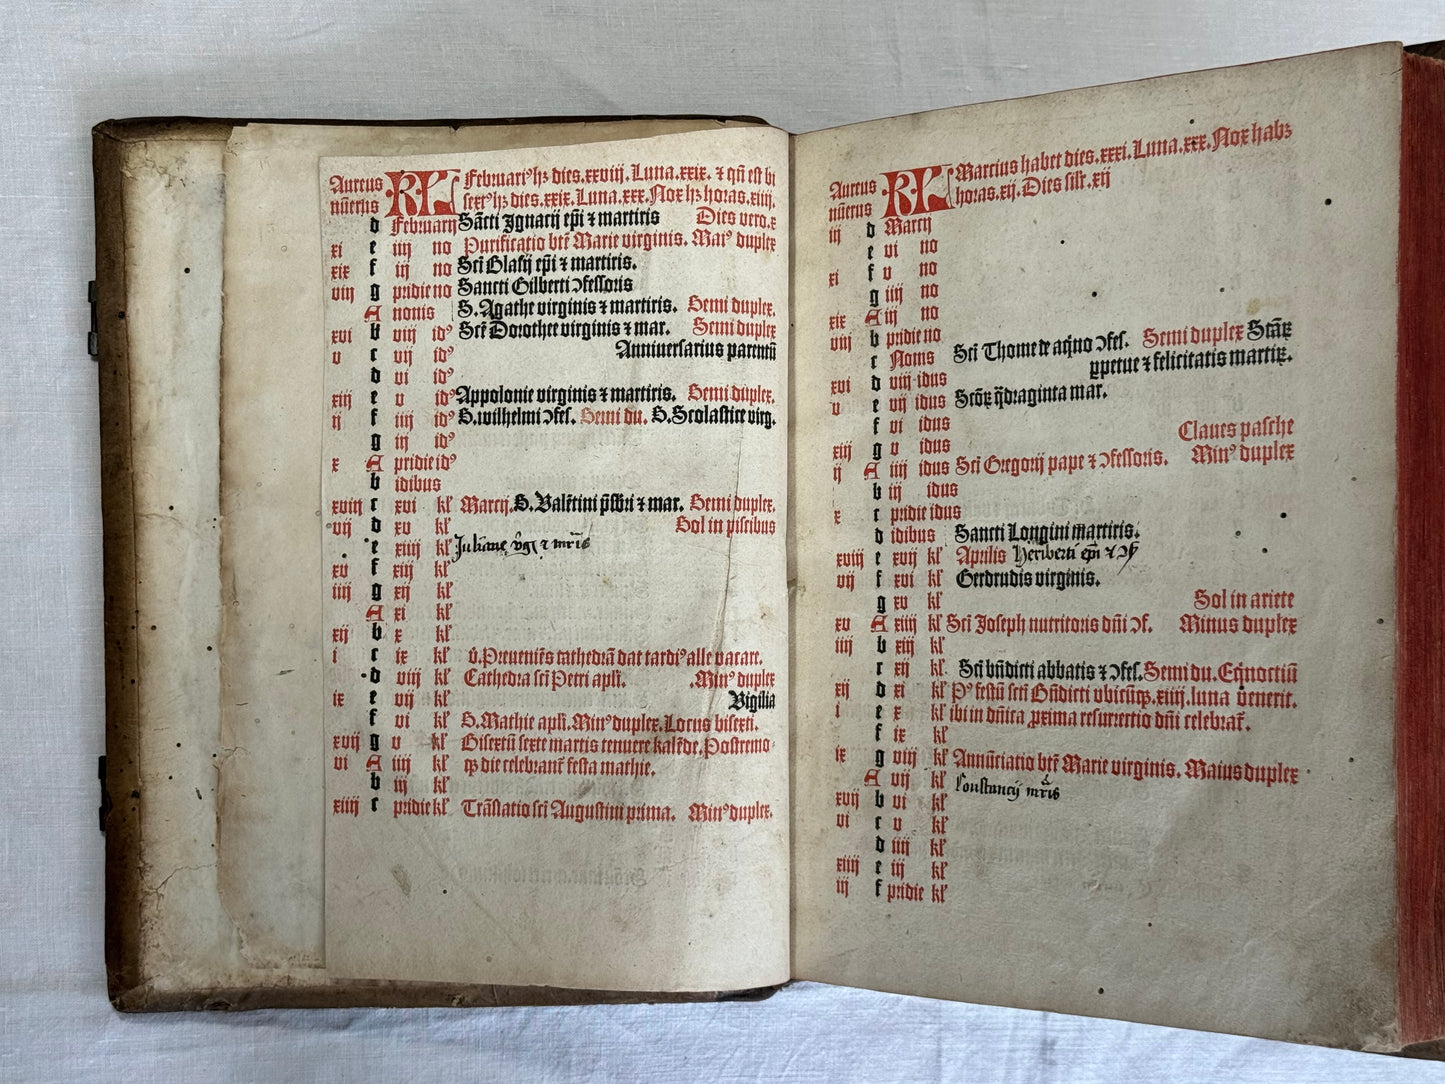 Aureus KL Februariꝰ hꝫ dies.xxviij. Luna.xxix. ⁊ qñ est bi
nūerus sextꝰ hꝫ dies.xxix. Luna.xxx. Nox hꝫ horas.xiiij.
d Februarij Sācti Ignacij ep̄i ⁊ martiris Dies vero.x
xi e iiij no Purificatio btē Marie virginis. Maiꝰ duplex
xix f iij no Sc̄i Blasij ep̄i ⁊ martiris.
viij g pridie no Sancti Gilberti ꝯfessoris
A nonis S. Agathe virginis ⁊ martiris. Semi duplex.
xvi b viij idꝰ Sc̄e Dorothee virginis ⁊ mar. Semi duplex
v c vij idꝰ Anniuersarius parentū
d vi idꝰ
xiij e v idꝰ Appolonie virginis ⁊ martiris. Semi duplex.
ij f iiij idꝰ S. wilhelmi ꝯfes. Semi du. S. Scolastice virg.
g iij idꝰ
x A pridie idꝰ
b idibus
xviij c xvi kl̄ Marcij. S. Valētini p̄sbri ⁊ mar. Semi duplex.
vij d xv kl̄ Sol in piscibus
e xiiij kl̄ Juliane v̄gī ⁊ mr̄is
xv f xiij kl̄
iiij g xij kl̄
A xi kl̄
xij b x kl̄
i c ix kl̄ v̄. Preueniēs cathedrā dat tardiꝰ alle vacare.
d viij kl̄ Cathedra sc̄i Petri apl̄i. Minꝰ duplex
ix e vij kl̄ Vigilia
f vi kl̄ S. Mathie apl̄i. Minꝰ duplex. Locus bisexti.
xvij g v kl̄ Bisextū sexte martis tenuere kalēde. Postremo-
vi A iiij kl̄ qꝫ die celebrant̄ festa mathie.
b iij kl̄
xiiij c pridie kl̄ Trāslatio sc̄i Augustini prima. Minꝰ duplex.
Aureus KL Marcius habet dies.xxxi. Luna.xxx. Nox habꝫ
nūerus horas.xij. Dies sil̄r.xij
iij d Marcij
e vi no
xi f v no
g iiij no
xix A iij no
viij b pridie no
c Nonis Sc̄i Thome de aq̄no ꝯfes. Semi duplex Sctāꝝ
xvi d viij idus ꝑpetue ⁊ felicitatis martiꝝ.
v e vij idus Sctōꝝ q̄draginta mar.
f vi idus
xiij g v idus Claues pasche
ij A iiij idus Sc̄i Gregorij pape ⁊ ꝯfessoris. Minꝰ duplex
b iij idus
x c pridie idus
d idibus Sancti Longini martiris.
xviij e xvij kl̄ Aprilis Heriberti ep̄i ⁊ ꝯf
vij f xvi kl̄ Gerdrudis virginis.
g xv kl̄ Sol in ariete
xv A xiiij kl̄ Sc̄i Joseph nutritoris dn̄i ꝯf. Minus duplex
iiij b xiij kl̄
c xij kl̄ Sc̄i bn̄dicti abbatis ⁊ ꝯfes. Semi du. Eq̄noctiū
xij d xi kl̄ Pꝰ festū sc̄i Bn̄dicti vbicūqꝫ.xiiij.luna venerit.
i e x kl̄ ibi in dn̄ica ꝓxima resurrectio dn̄i celebrat̄.
f ix kl̄
ix g viij kl̄ Annūciatio btē Marie virginis. Maius duplex
A vij kl̄ Constancij mr̄is
xvij b vi kl̄
vi c v kl̄
d iiij kl̄
xiiij e iij kl̄
iij f pridie kl̄